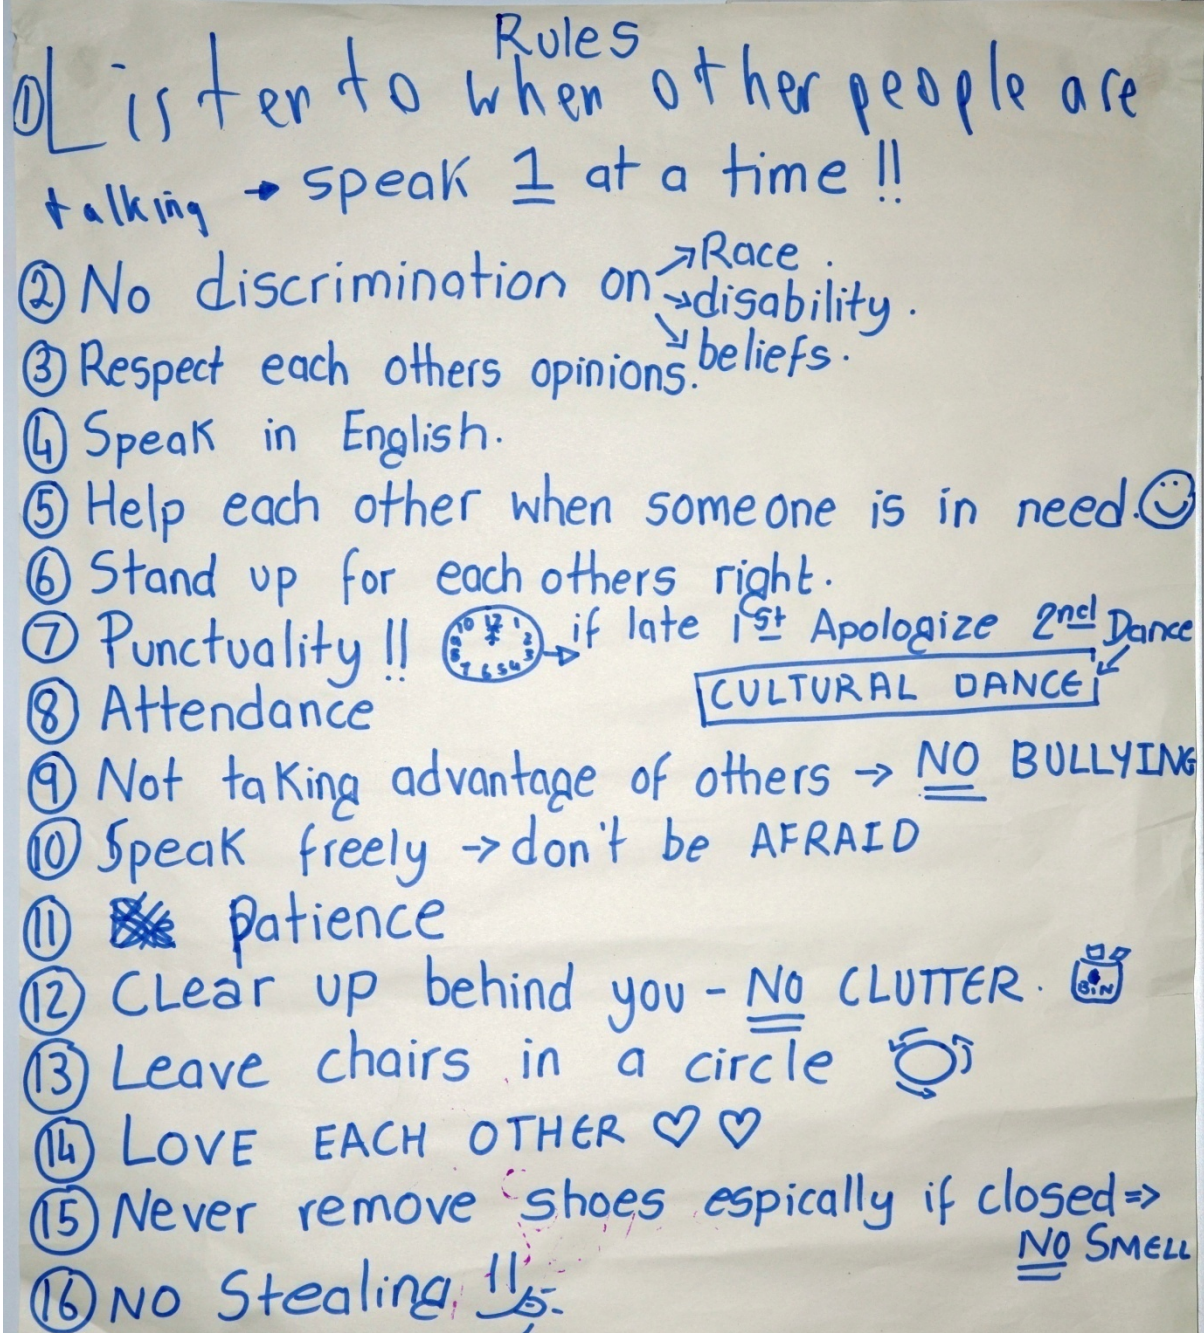 Rules
① Listen to when other people are
talking → speak 1 at a time !!
② No discrimination on → Race .
→ disability .
→ beliefs .
③ Respect each others opinions.
④ Speak in English.
⑤ Help each other when someone is in need. ☺
⑥ Stand up for each others right.
⑦ Punctuality !! 10 12 1 2 3 4 5 6 7 8 9 → if late 1st Apologize 2nd Dance
CULTURAL DANCE
⑧ Attendance
⑨ Not taking advantage of others → NO BULLYING
⑩ Speak freely → don't be AFRAID
⑪ Patience
⑫ CLear up behind you - NO CLUTTER . BiN
⑬ Leave chairs in a circle
⑭ LOVE EACH OTHER ♡ ♡
⑮ Never remove shoes espically if closed =>
NO SMELL
⑯ NO Stealing !!